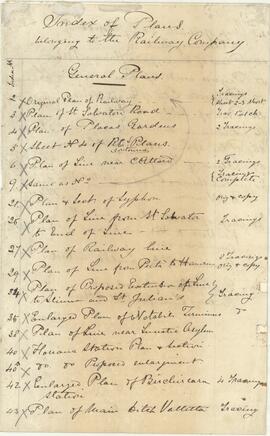 Index of Plans
belonging to the Railway Company
General Plans.
2 X Original Plan of Railway Tracings Sheet 2 & 3 short
3 X Plan of St Salvatore Road
4 X Plan of Placas Gardens 2 Tracings
5 X Sheet No 4 of Plans
6 X Plan of Line near Attard 2 Tracings
9 X Same as No Tracing Complete
21 X Plan & Sect. of Syphon orig & copy
26 X Plan of Line from St Salvator Tracings
to End of Line
27 X Plan of Railway line
29 X Plan of Line from to Hamrun Tracings orig & copy
34 X Plan of Proposed Extension of Line
to Sliema and St Julian's Tracing
36 X Enlarged Plan of Notabile Terminus
38 X Plan of Line near Lunatic Asylum
40 X Floriana Station Plan & Section
48 X Do Do Proposed enlargement
42 X Enlarged Plan of Birchircara 4 Tracings
Station
43 X Plan of Main Ditch Valletta Tracing